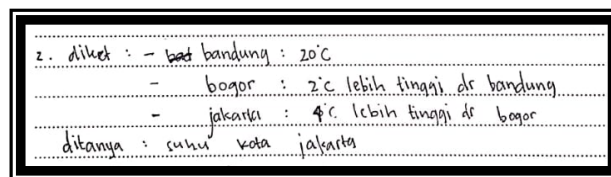 2. diket : - bandung : 20°C
- bogor : 2°C lebih tinggi dr bandung
- jakarta : 4°C lebih tinggi dr bogor
ditanya : suhu kota jakarta